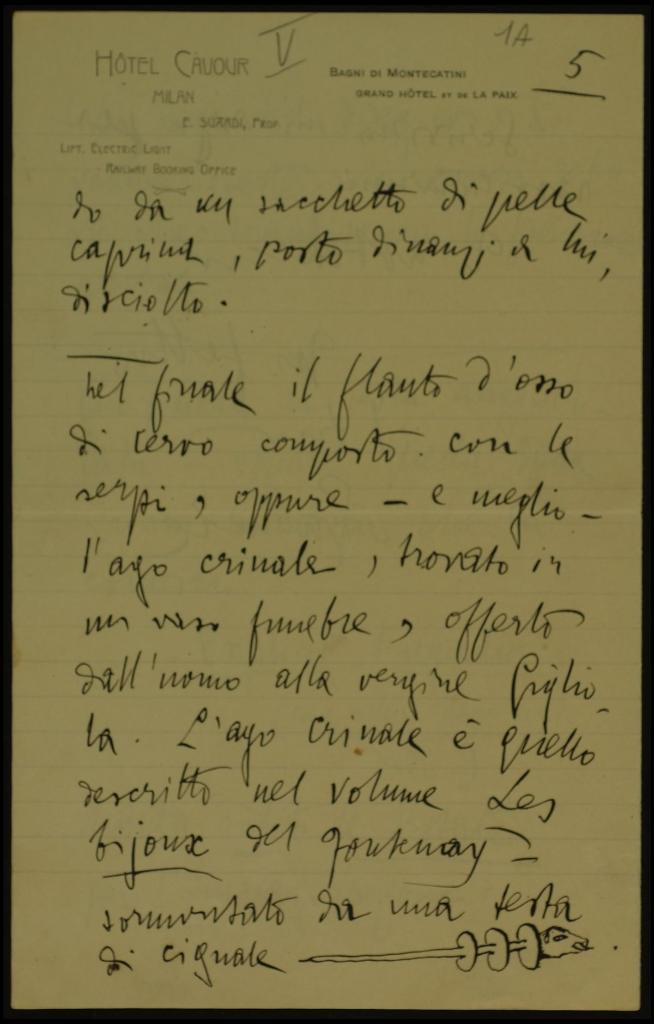 V
1A
5
HÔTEL CAVOUR
MILAN
E. SUARDI, PROP.
LIFT. ELECTRIC LIGHT
RAILWAY BOOKING OFFICE
BAGNI DI MONTECATINI
GRAND HÔTEL ET DE LA PAIX
do da un sacchetto di pelle
caprina, posto dinanzi a lui,
disciolto.
Nel finale il flauto d'osso
di cervo composto con le
serpi, oppure – e meglio –
l'ago crinale, trovato in
un vaso funebre, offerto
dall'uomo alla vergine Giglio-
la. L'ago crinale è quello
descritto nel volume Les
bijoux del Fontenay –
sormontato da una testa
di cignale